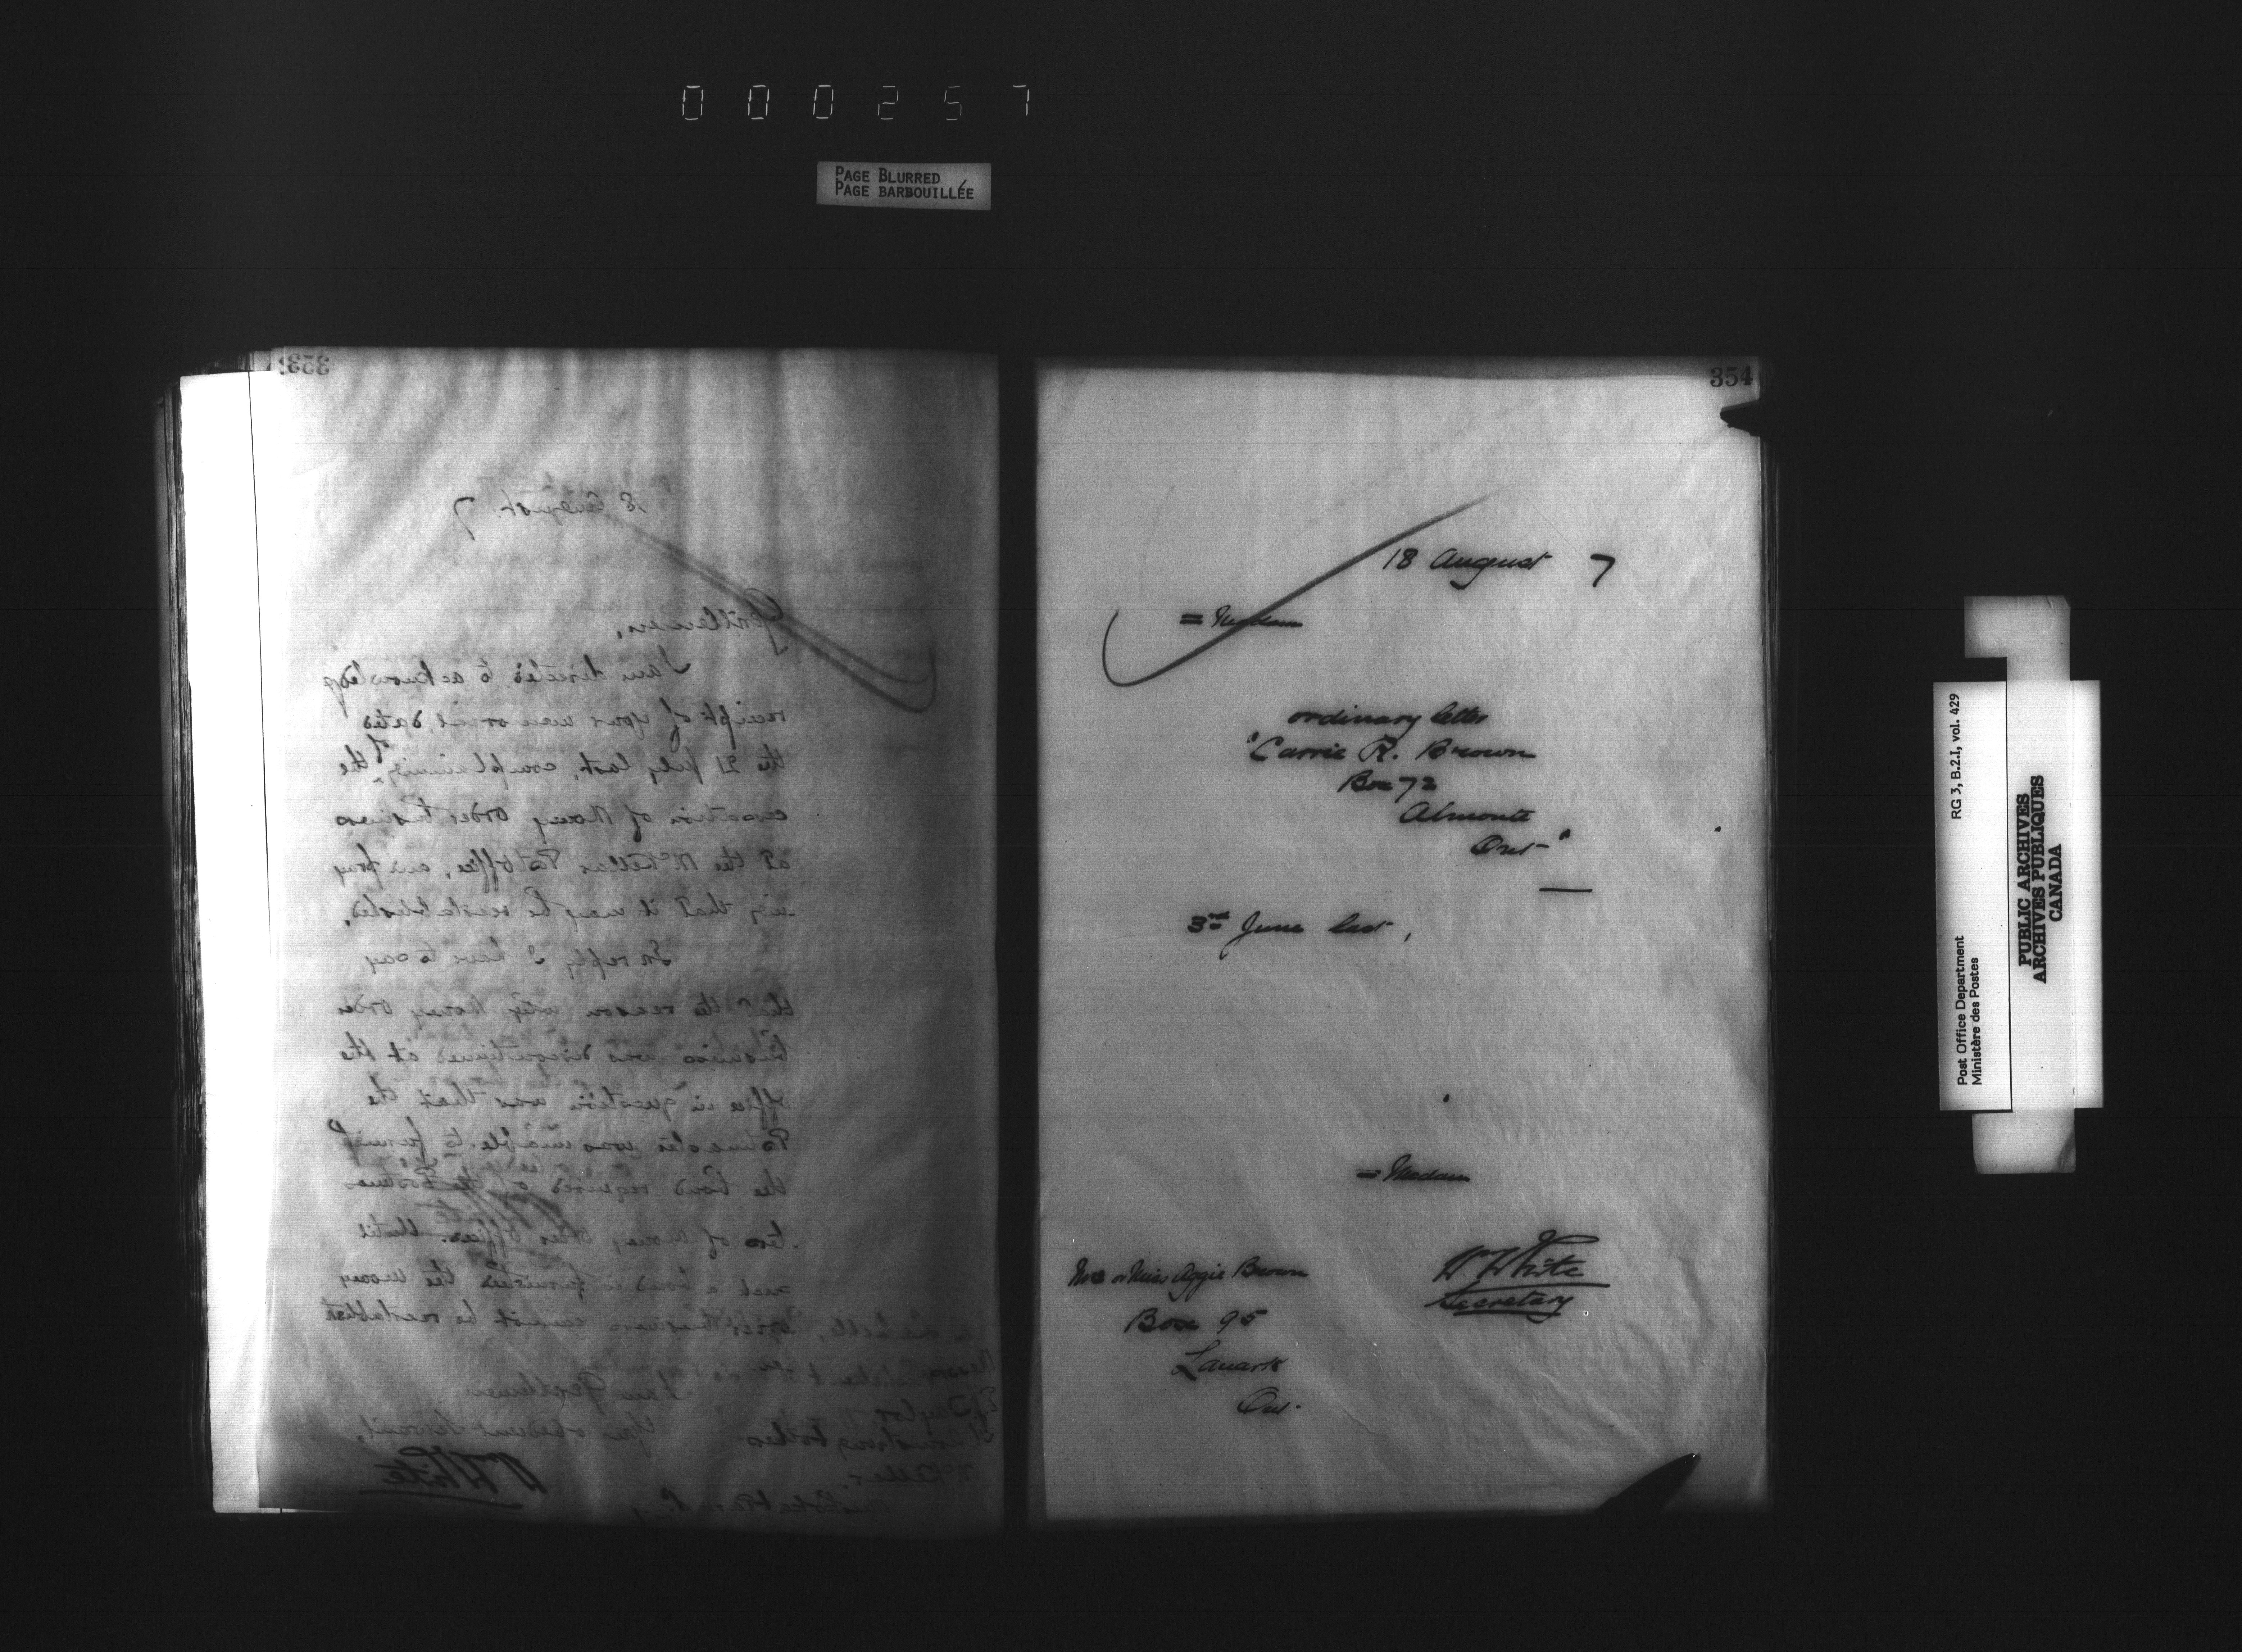 000257
PAGE BLURRED
PAGE BARBOUILLÉE
353
18 August. 7
Gentlemen,
I am directed to acknowledge
receipt of your memorial, dated
the 21 July last, complaining of the
cessation of Money Order business
at the McKellar Post Office, and pray
ing that it may be reestablished.
In reply I have to say
that the reason why Money Order
business was discontinued at the
office in question was that the
Postmaster was unable to furnish
the bond required of the Postmas
ters of Money Order Offices. Until
such a bond is furnished the money
order business cannot be reestablish
I am, Gentlemen
Your obedient Servant,
W White
Armstrong & others
McKellar,
354
18 August 7
= Madam
ordinary letter
"Carrie R. Brown
Box 72
Almonte
Ont-"
3rd June last,
= Madam
W White
Secretary
Mrs or Miss Aggie Brown
Box 95
Lanark
Ont.
Post Office Department
Ministère des Postes
RG 3, B.2.I, vol. 429
PUBLIC ARCHIVES
ARCHIVES PUBLIQUES
CANADA